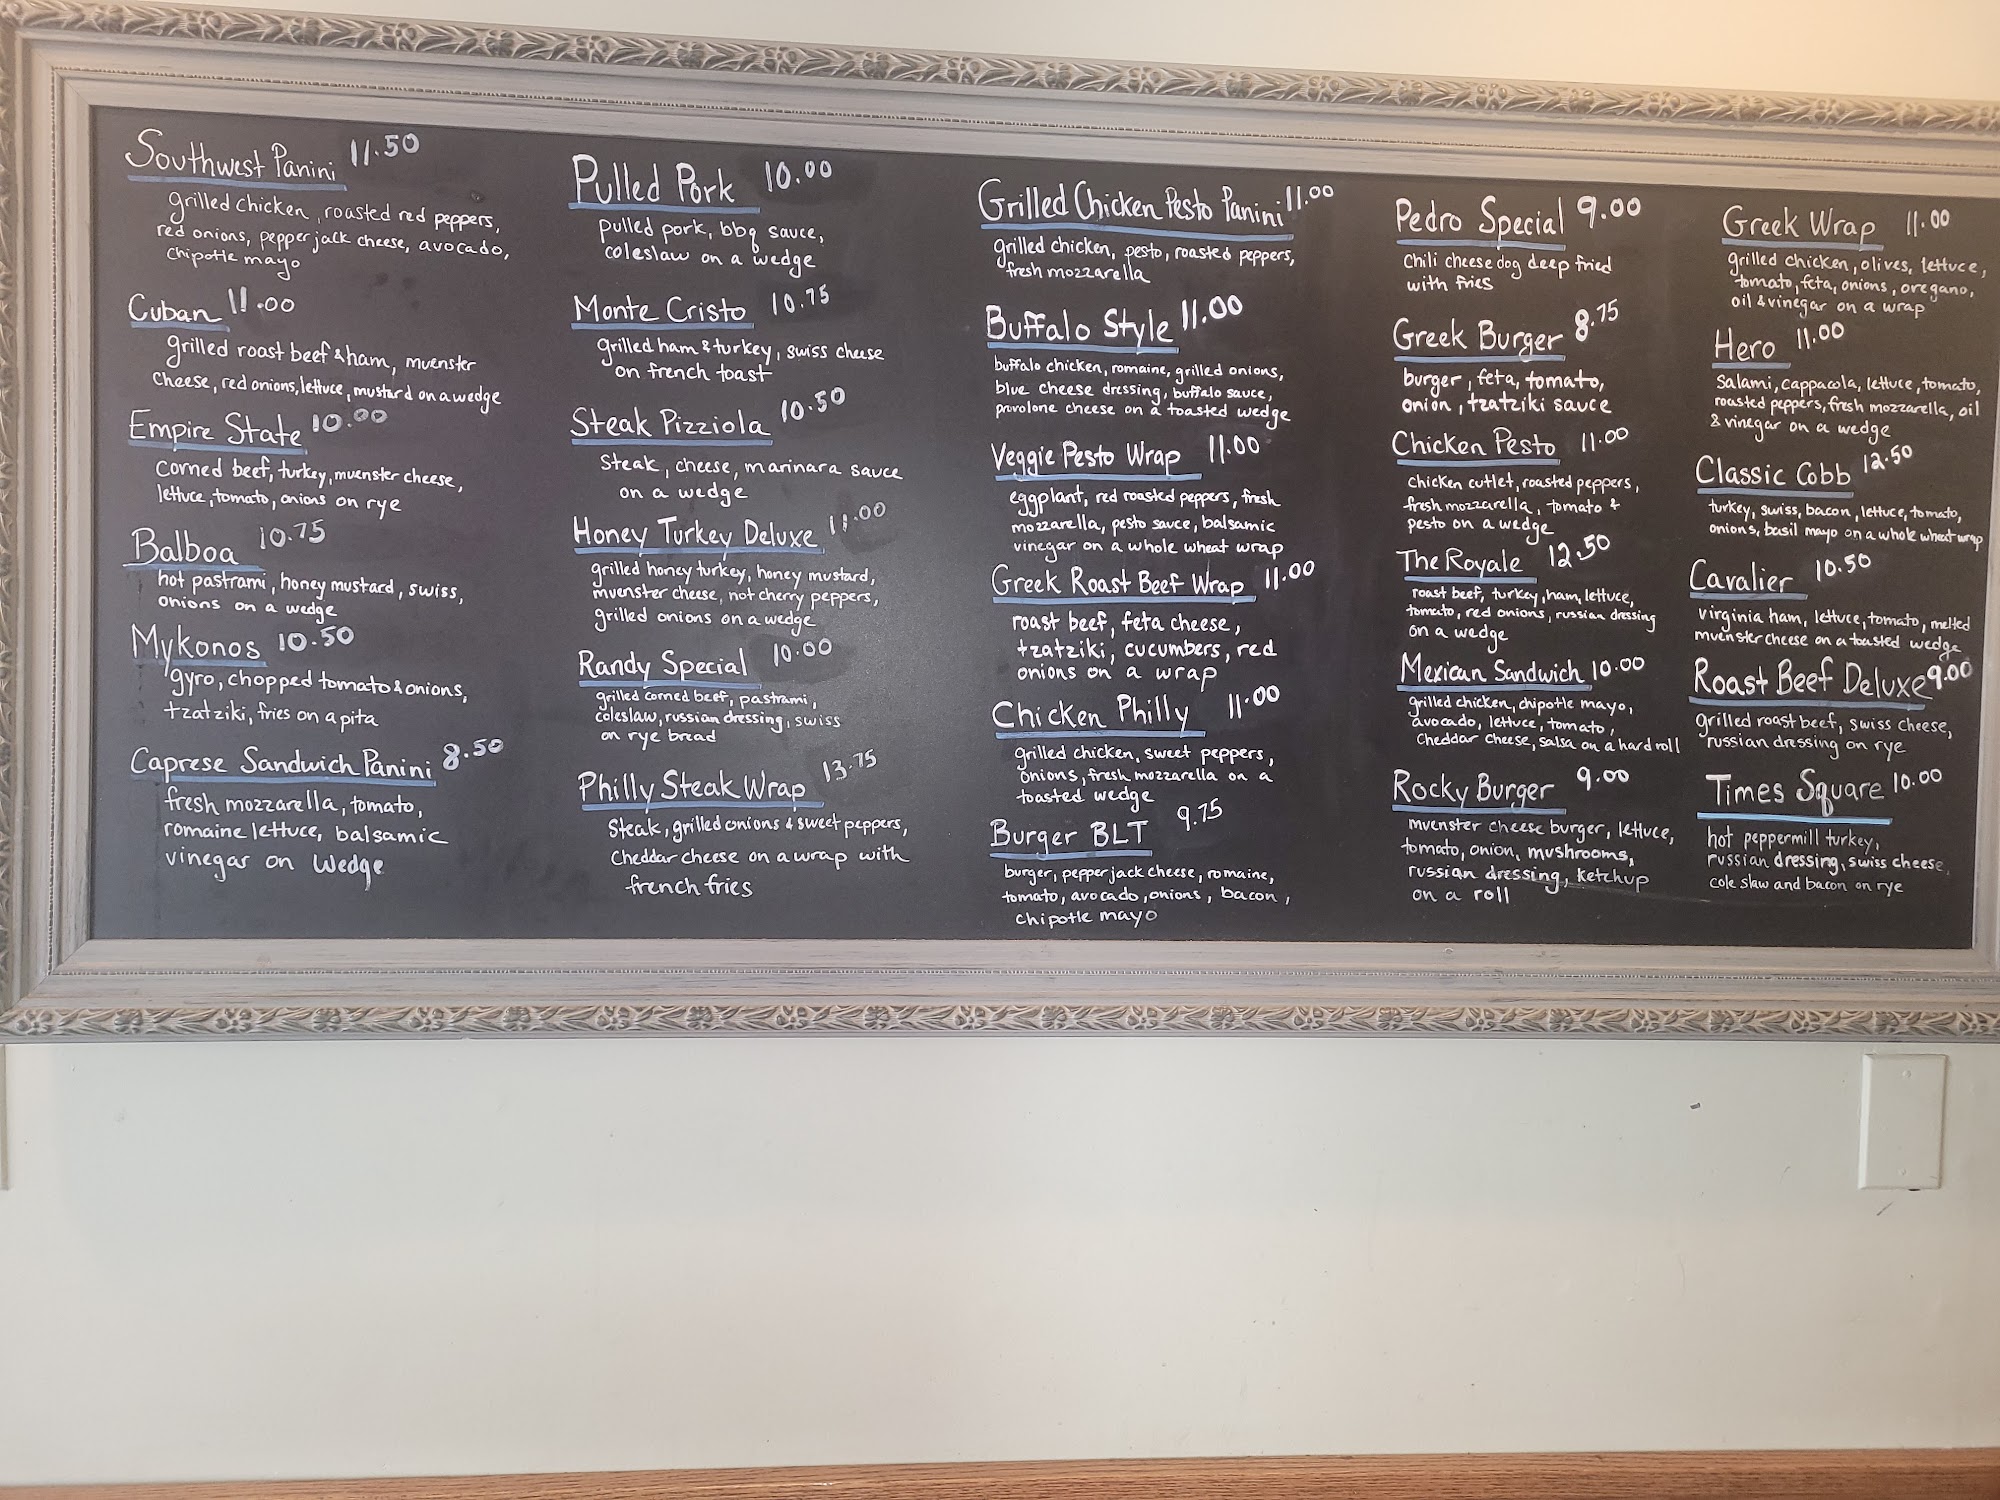 Southwest Panini 11.50
grilled chicken, roasted red peppers,
red onions, pepper jack cheese, avocado,
chipotle mayo
Cuban 11.00
grilled roast beef & ham, muenster
cheese, red onions, lettuce, mustard on a wedge
Empire State 10.00
corned beef, turkey, muenster cheese,
lettuce, tomato, onions on rye
Balboa 10.75
hot pastrami, honey mustard, swiss,
onions on a wedge
Mykonos 10.50
gyro, chopped tomato & onions,
tzatziki, fries on a pita
Caprese Sandwich Panini 8.50
fresh mozzarella, tomato,
romaine lettuce, balsamic
vinegar on wedge
Pulled Pork 10.00
pulled pork, bbq sauce,
coleslaw on a wedge
Monte Cristo 10.75
grilled ham & turkey, swiss cheese
on french toast
Steak Pizziola 10.50
Steak, cheese, marinara sauce
on a wedge
Honey Turkey Deluxe 11.00
grilled honey turkey, honey mustard,
muenster cheese, hot cherry peppers,
grilled onions on a wedge
Randy Special 10.00
grilled corned beef, pastrami,
coleslaw, russian dressing, swiss
on rye bread
Philly Steak Wrap 13.75
Steak, grilled onions & sweet peppers,
Cheddar cheese on a wrap with
french fries
Grilled Chicken Pesto Panini 11.00
grilled chicken, pesto, roasted peppers,
fresh mozzarella
Buffalo Style 11.00
buffalo chicken, romaine, grilled onions,
blue cheese dressing, buffalo sauce,
provolone cheese on a toasted wedge
Veggie Pesto Wrap 11.00
eggplant, red roasted peppers, fresh
mozzarella, pesto sauce, balsamic
vinegar on a whole wheat wrap
Greek Roast Beef Wrap 11.00
roast beef, feta cheese,
tzatziki, cucumbers, red
onions on a wrap
Chicken Philly 11.00
grilled chicken, sweet peppers,
onions, fresh mozzarella on a
toasted wedge
Burger BLT 9.75
burger, pepper jack cheese, romaine,
tomato, avocado, onions, bacon,
chipotle mayo
Pedro Special 9.00
Chili cheese dog deep fried
with fries
Greek Burger 8.75
burger, feta, tomato,
onion, tzatziki sauce
Chicken Pesto 11.00
chicken cutlet, roasted peppers,
fresh mozzarella, tomato &
pesto on a wedge
The Royale 12.50
roast beef, turkey, ham, lettuce,
tomato, red onions, russian dressing
on a wedge
Mexican Sandwich 10.00
grilled chicken, chipotle mayo,
avocado, lettuce, tomato,
Cheddar cheese, salsa on a hard roll
Rocky Burger 9.00
muenster cheese burger, lettuce,
tomato, onion, mushrooms,
russian dressing, ketchup
on a roll
Greek Wrap 11.00
grilled chicken, olives, lettuce,
tomato, feta, onions, oregano,
oil & vinegar on a wrap
Hero 11.00
Salami, cappacola, lettuce, tomato,
roasted peppers, fresh mozzarella, oil
& vinegar on a wedge
Classic Cobb 12.50
turkey, swiss, bacon, lettuce, tomato,
onions, basil mayo on a whole wheat wrap
Cavalier 10.50
virginia ham, lettuce, tomato, melted
muenster cheese on a toasted wedge
Roast Beef Deluxe 9.00
grilled roast beef, swiss cheese,
russian dressing on rye
Times Square 10.00
hot peppermill turkey,
russian dressing, swiss cheese,
cole slaw and bacon on rye